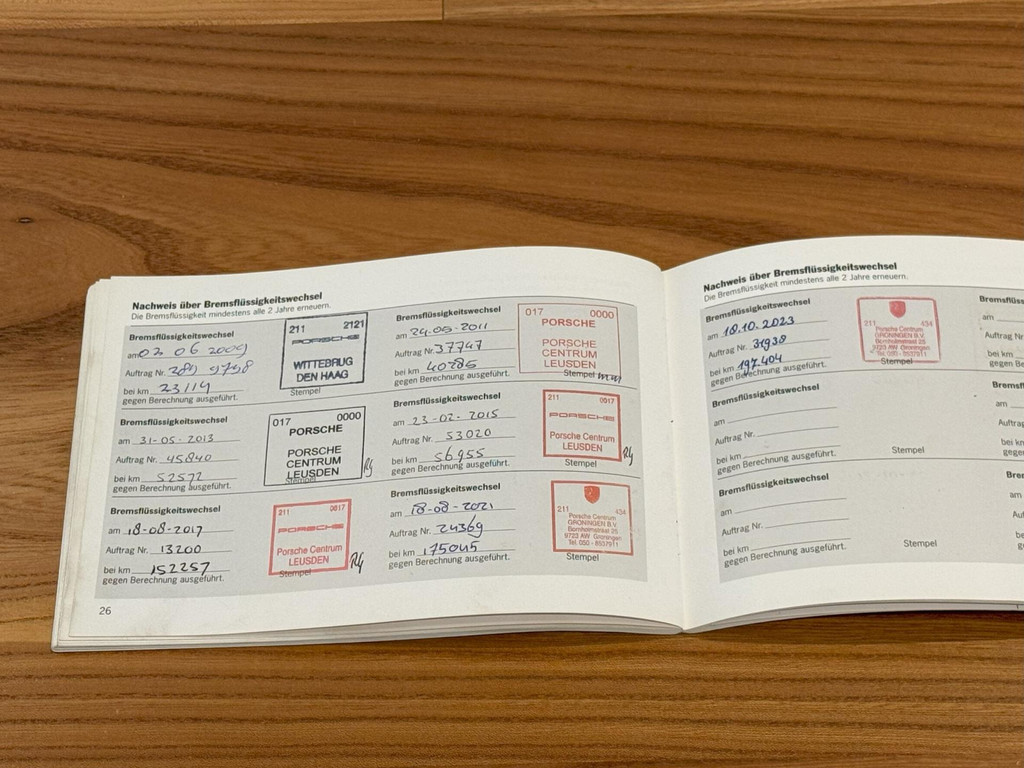 Nachweis über Bremsflüssigkeitswechsel
Die Bremsflüssigkeit mindestens alle 2 Jahre erneuern.
Bremsflüssigkeitswechsel
am 03 06 2009
Auftrag Nr.
bei km 23114
gegen Berechnung ausgeführt.
211 2121
PORSCHE
WITTEBRUG
DEN HAAG
Stempel
Bremsflüssigkeitswechsel
am 24-05-2011
Auftrag Nr. 37747
bei km 40285
gegen Berechnung ausgeführt.
017 0000
PORSCHE
PORSCHE
CENTRUM
LEUSDEN
Stempel
Bremsflüssigkeitswechsel
am 31-05-2013
Auftrag Nr. 45840
bei km 52572
gegen Berechnung ausgeführt.
017 0000
PORSCHE
PORSCHE
CENTRUM
LEUSDEN
Stempel
Bremsflüssigkeitswechsel
am 23-02-2015
Auftrag Nr. 53020
bei km 56955
gegen Berechnung ausgeführt.
211 0017
PORSCHE
Porsche Centrum
LEUSDEN
Stempel
Bremsflüssigkeitswechsel
am 18-08-2017
Auftrag Nr. 13200
bei km 152257
gegen Berechnung ausgeführt.
211 0017
PORSCHE
Porsche Centrum
LEUSDEN
Stempel
Bremsflüssigkeitswechsel
am 18-08-2021
Auftrag Nr. 24369
bei km 175045
gegen Berechnung ausgeführt.
211 434
Porsche Centrum
GRONINGEN B.V.
Bornholmstraat 25
9723 AW Groningen
Tel. 050 - 8537911
Stempel
26
Nachweis über Bremsflüssigkeitswechsel
Die Bremsflüssigkeit mindestens alle 2 Jahre erneuern.
Bremsflüssigkeitswechsel
am 18.10.2023
Auftrag Nr. 31938
bei km 197.404
gegen Berechnung ausgeführt.
211 434
Porsche Centrum
GRONINGEN B.V.
Bornholmstraat 25
9723 AW Groningen
Tel. 050 - 8537911
Stempel
Bremsflüss
am
Auftrag Nr.
bei km
gegen Be
Bremsflüssigkeitswechsel
am
Auftrag Nr.
bei km
gegen Berechnung ausgeführt.
Stempel
Bremsflü
am
Auftrag
bei km
gegen B
Bremsflüssigkeitswechsel
am
Auftrag Nr.
bei km
gegen Berechnung ausgeführt.
Stempel
Brem
am
Auftr
bei